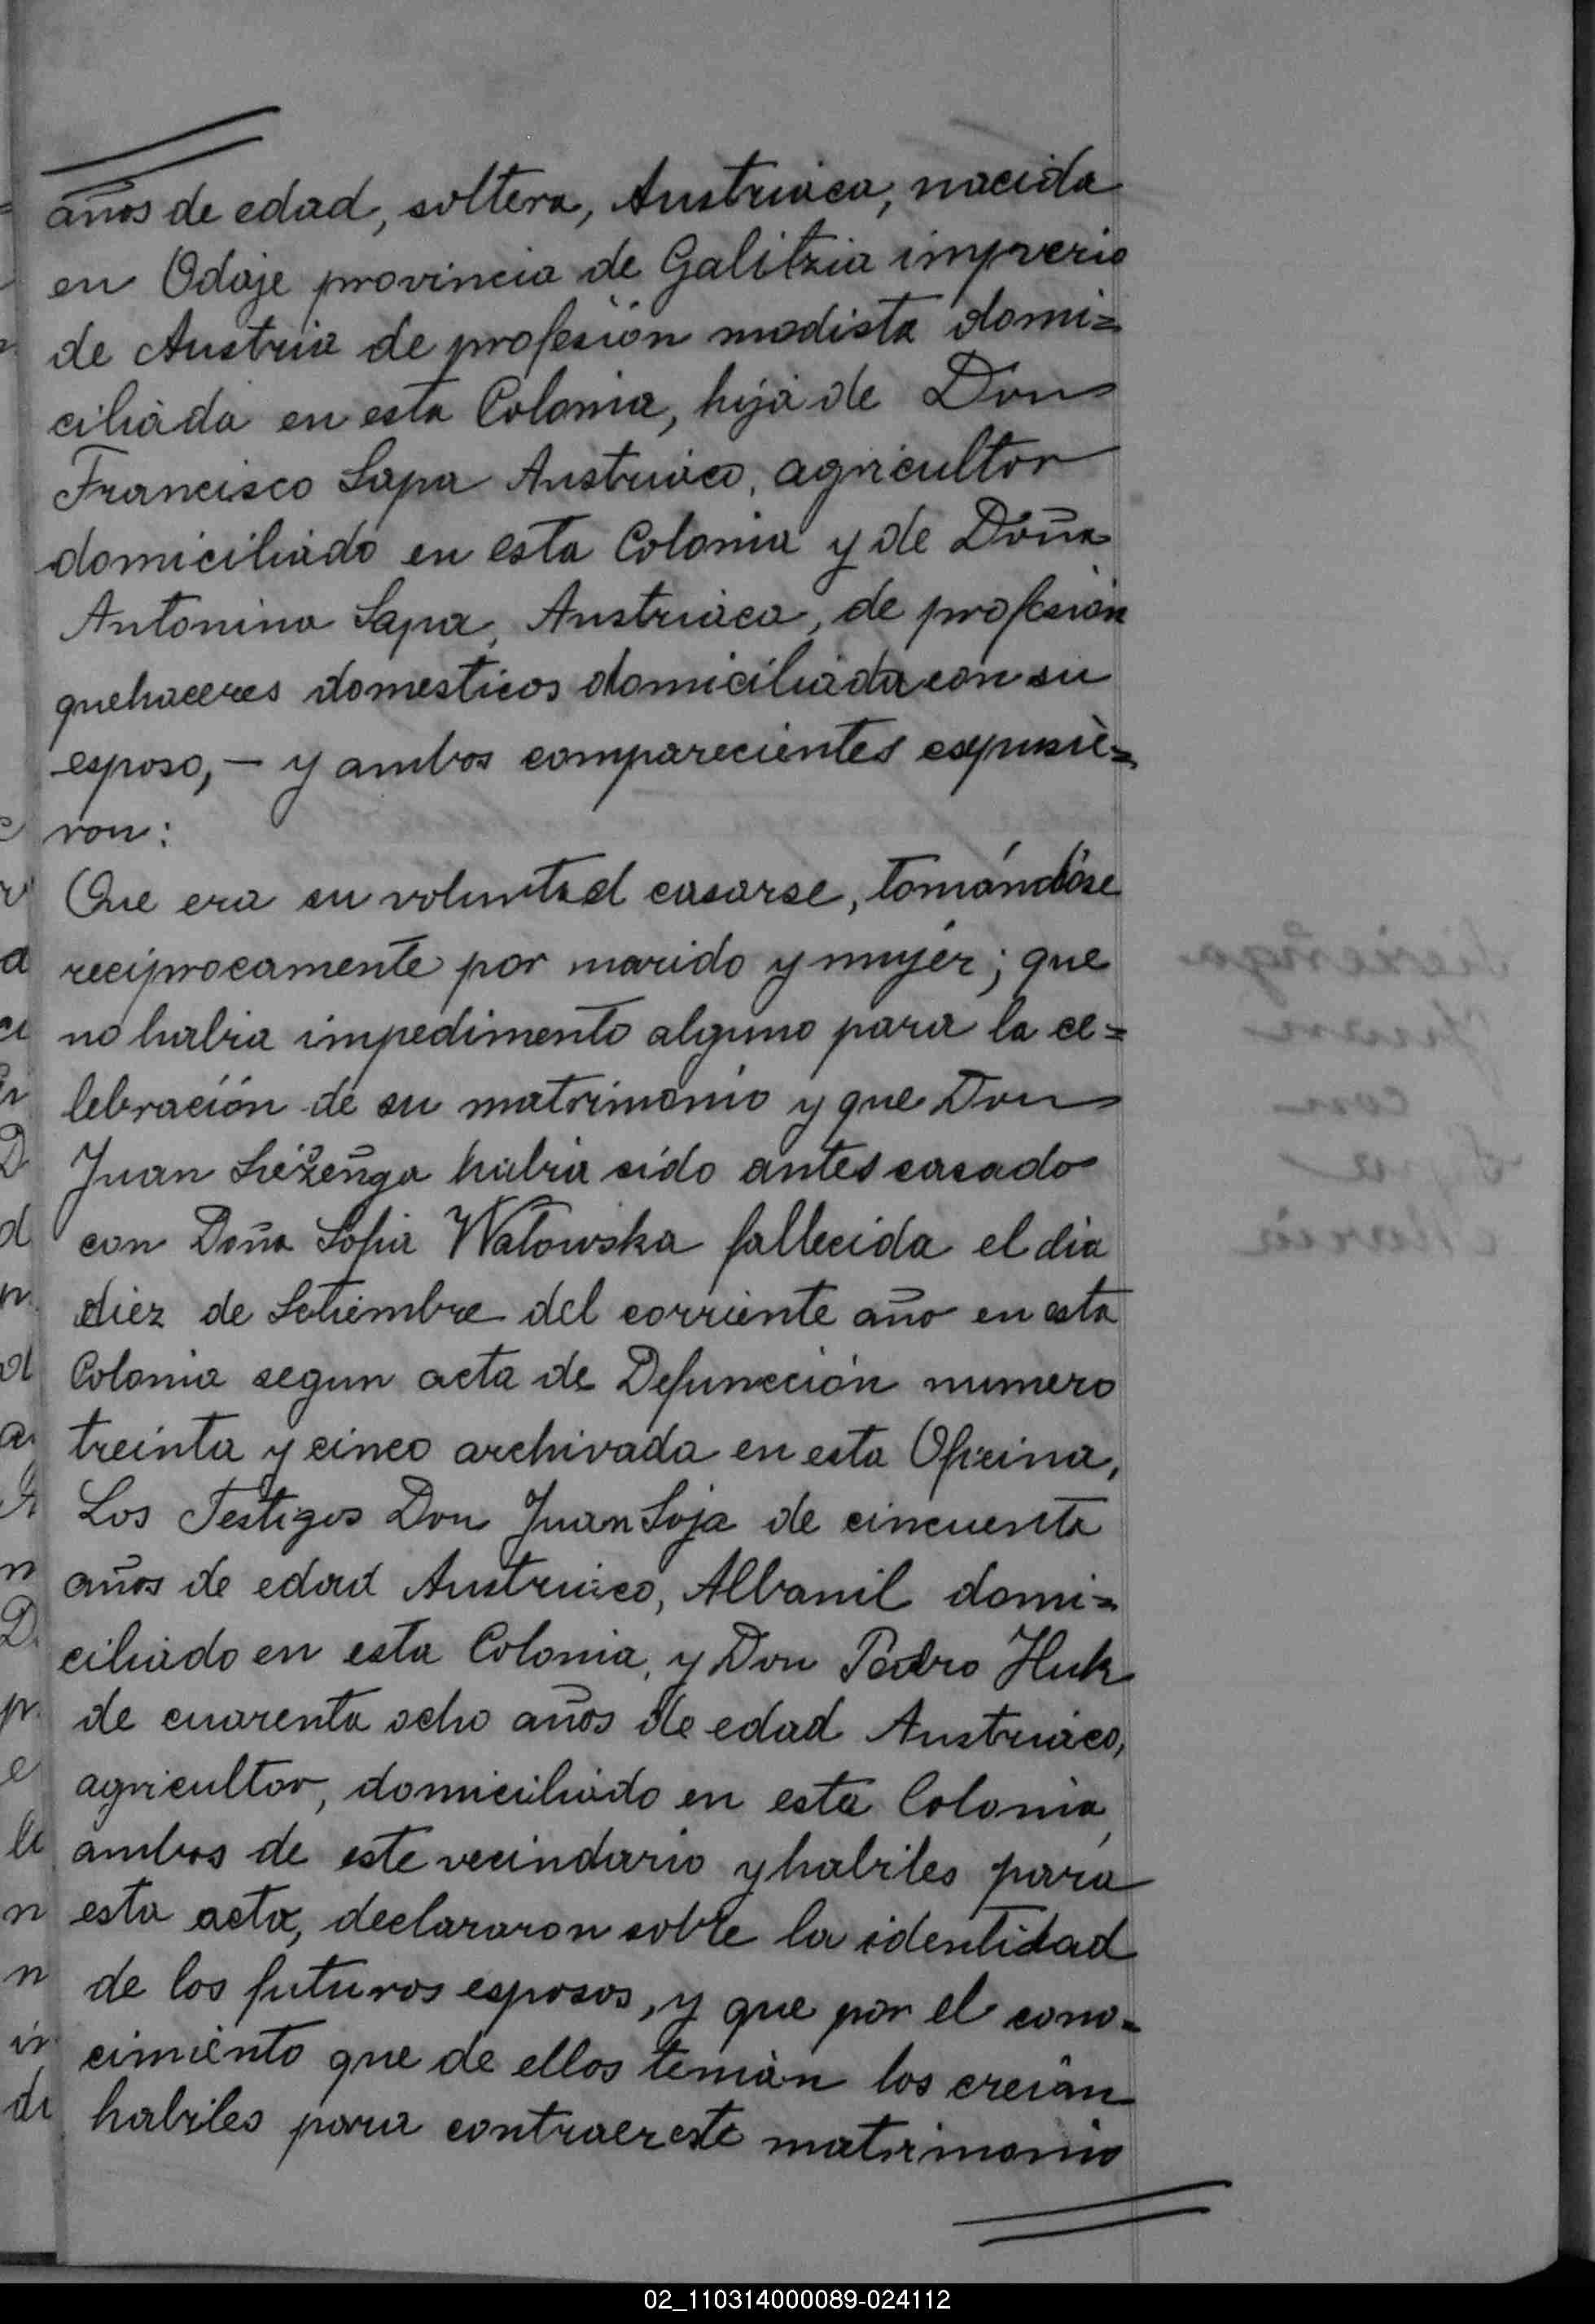 años de edad, soltera, Austriaca, nacida
en Odaje provincia de Galitzia impverio
de Austria de profesión modista domi=
ciliada en esta Colonia, hija de Don
Francisco Sapa Austriaco, agricultor
domiciliado en esta Colonia y de Doña
Antonina Sapa, Austriaca, de profesión
quehaceres domesticos domiciliada con su
esposo, — y ambos comparecientes expusie=
ron:
Que era su voluntad casarse, tomándose
reciprocamente por marido y mujer; que
no habia impedimento alguno para la ce=
lebración de su matrimonio y que Don
Juan habia sido antes casado
con Doña Sofia Watowska fallecida el dia
diez de Setiembre del corriente año en esta
Colonia segun acta de Defuncción numero
treinta y cinco archivada en esta Oficina,
Los Testigos Don Juan Soja de cincuenta
años de edad Austriaco, Albanil domi=
ciliado en esta Colonia, y Don Pedro Huk
de cuarenta ocho años de edad Austriaco,
agricultor, domiciliado en esta Colonia,
ambos de este vecindario y habiles para
esta acta, declararon sobre la identidad
de los futuros esposos, y que por el cono=
cimiento que de ellos tenian los creian
habiles para contraer este matrimonio
02_110314000089-024112